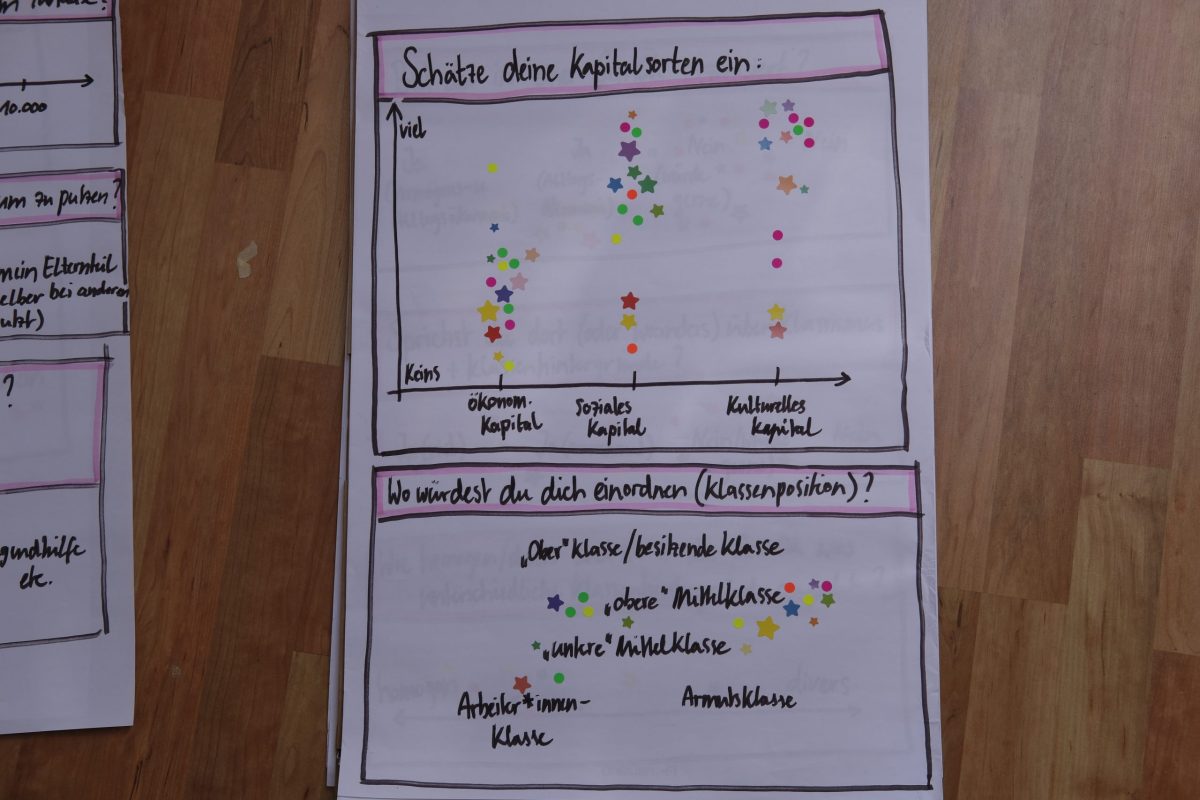 10.000
zu putzen?
mein Elternteil
selber bei anderen
putzt)
?
etc.
Schätze deine Kapitalsorten ein:
viel
Keins
Ökonom. Kapital
Soziales Kapital
Kulturelles Kapital
Wo würdest du dich einordnen (Klassenposition)?
„Ober"Klasse/besitzende Klasse
„obere" Mittelklasse
„untere" Mittelklasse
Arbeiter*innen-
Klasse
Armutsklasse